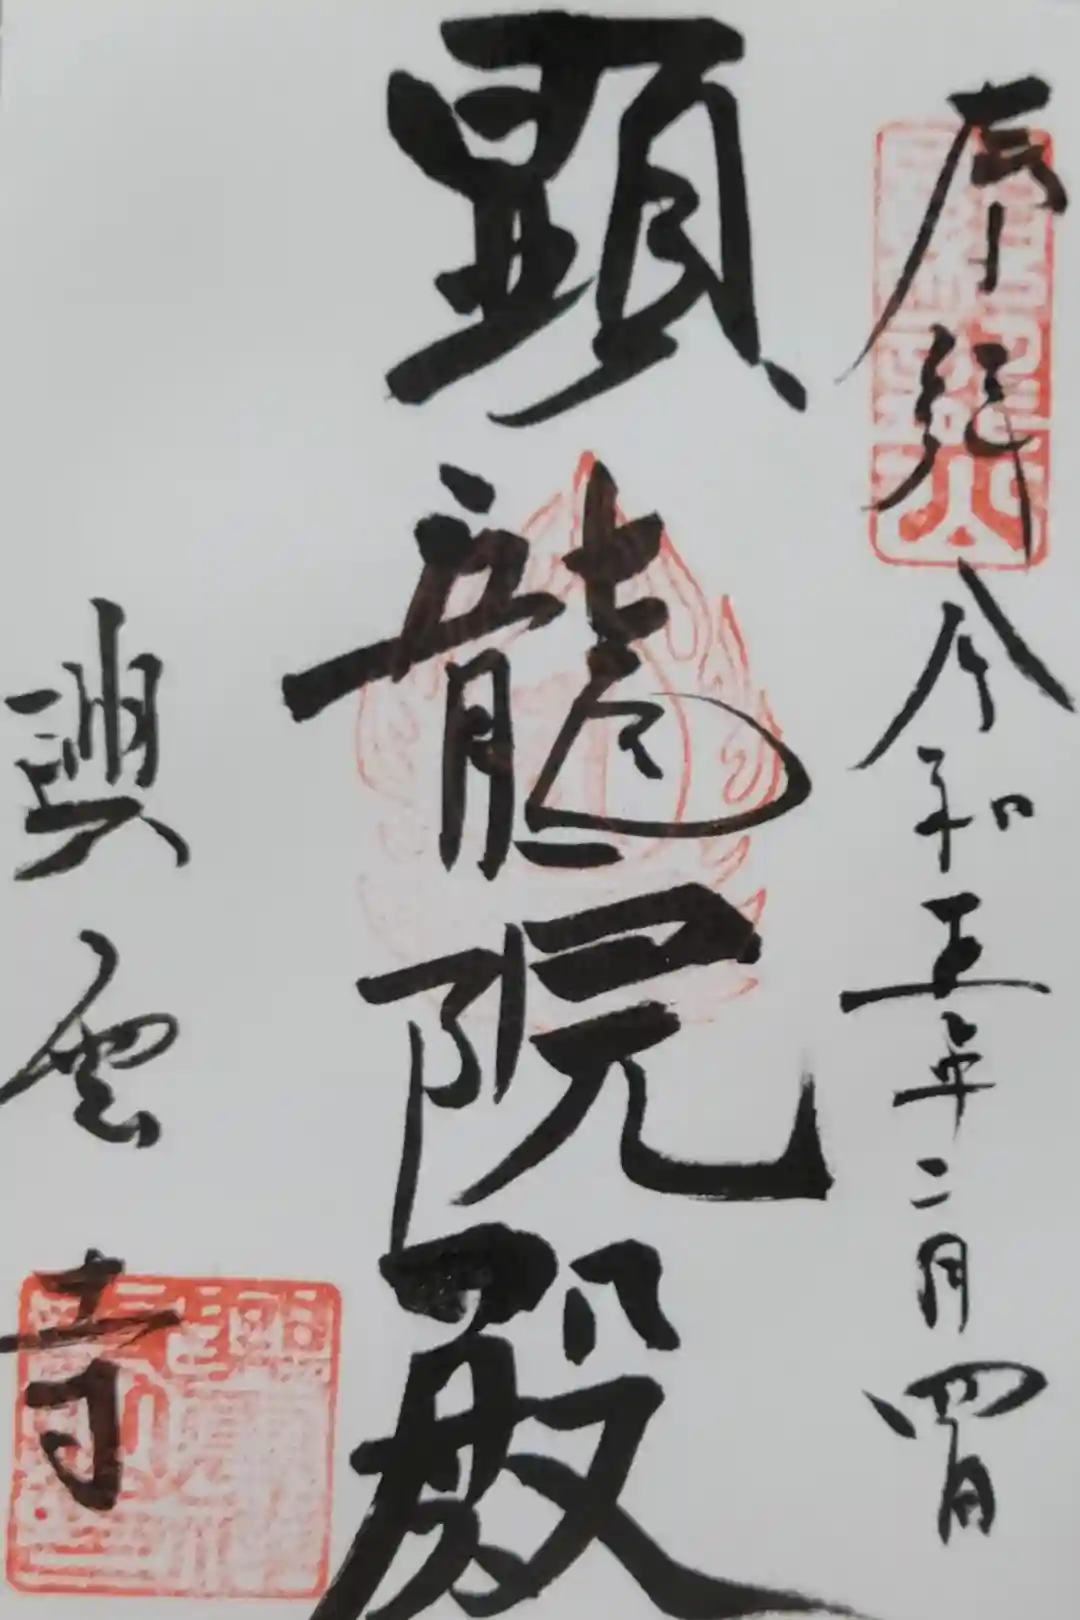 奉拝 令和五年二月四日
顕龍院殿
興雲寺